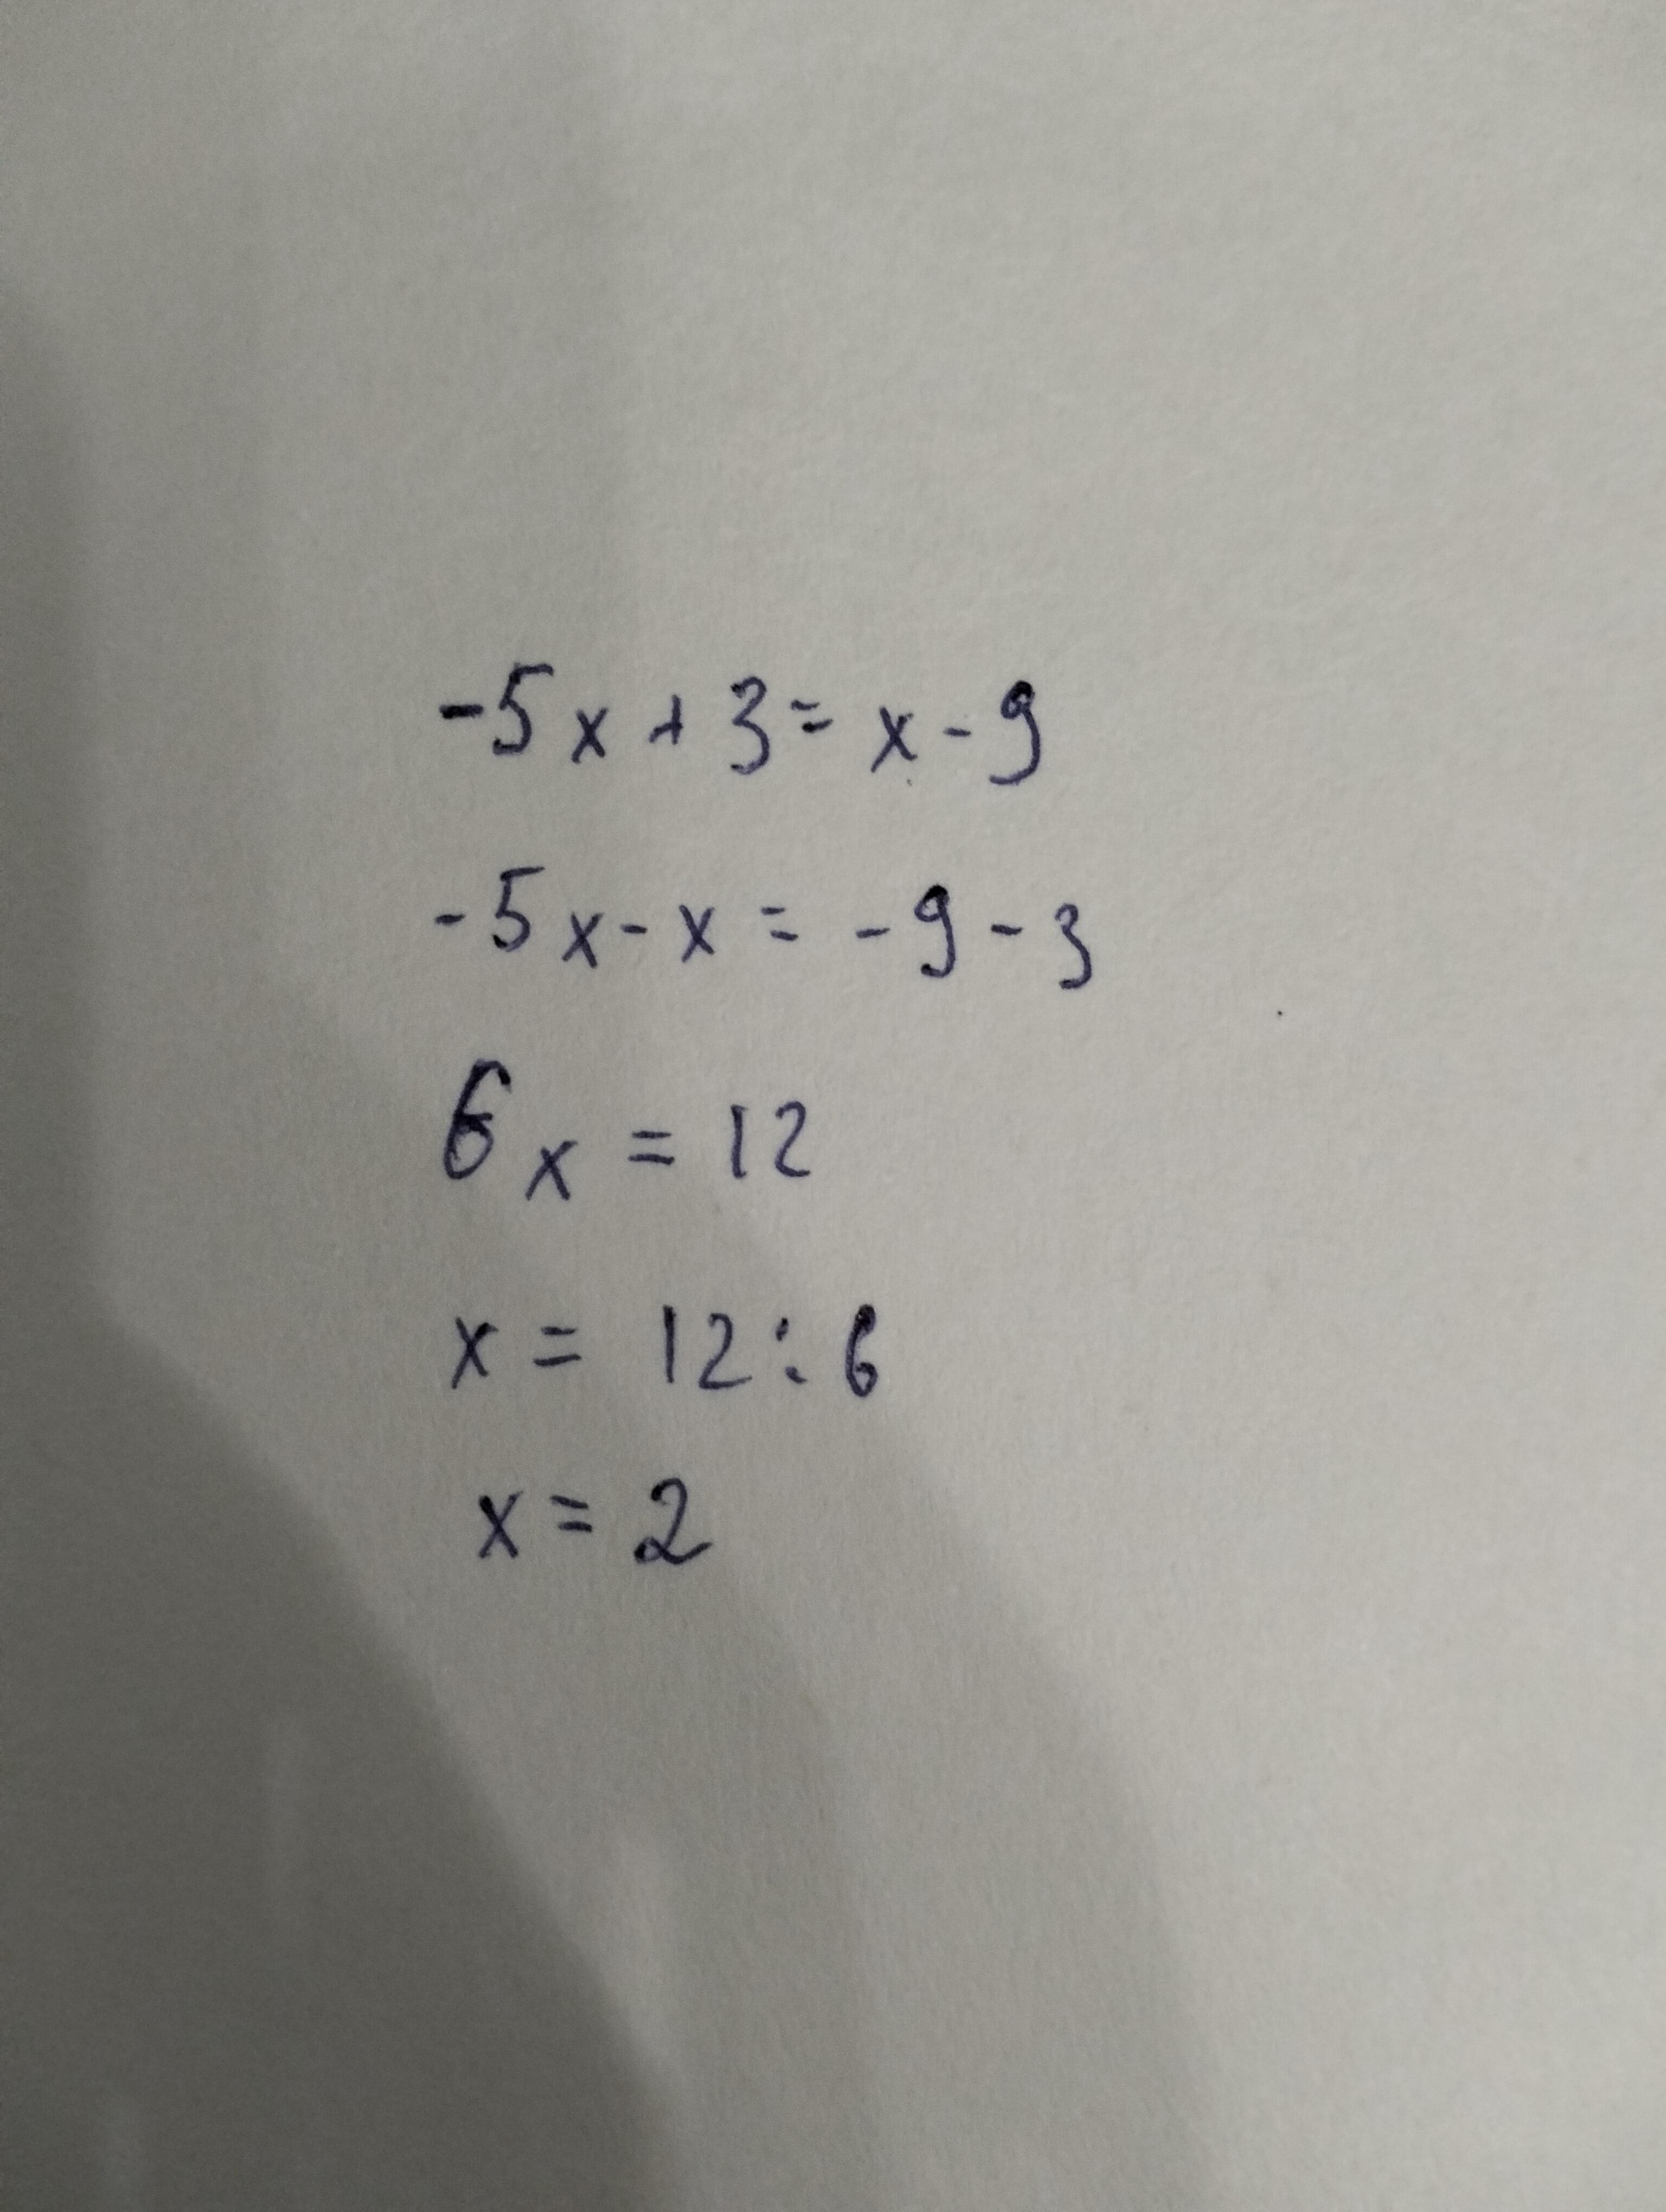 -5x + 3 = x - 9
-5x - x = -9 - 3
6x = 12
x = 12 : 6
x = 2